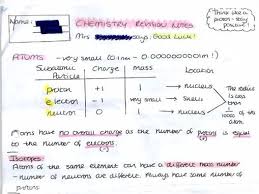 Name:
CHEMISTRY REVISION NOTES
Mrs says: Good Luck!
Think like a proton - stay positive!
ATOMS - very small (0.1nm - 0.0000000001m)
Subatomic Particle Charge mass Location
proton +1 1 → nucleus
electron -1 very small → Shells
neutron 0 1 → nucleus
The radius is less than of the
Atoms have no overall charge as the number of protons is equal
to the number of electrons.
Isotopes:
Atoms of the same element can have a different mass number
- number of neutrons are different. Always have same number of
protons